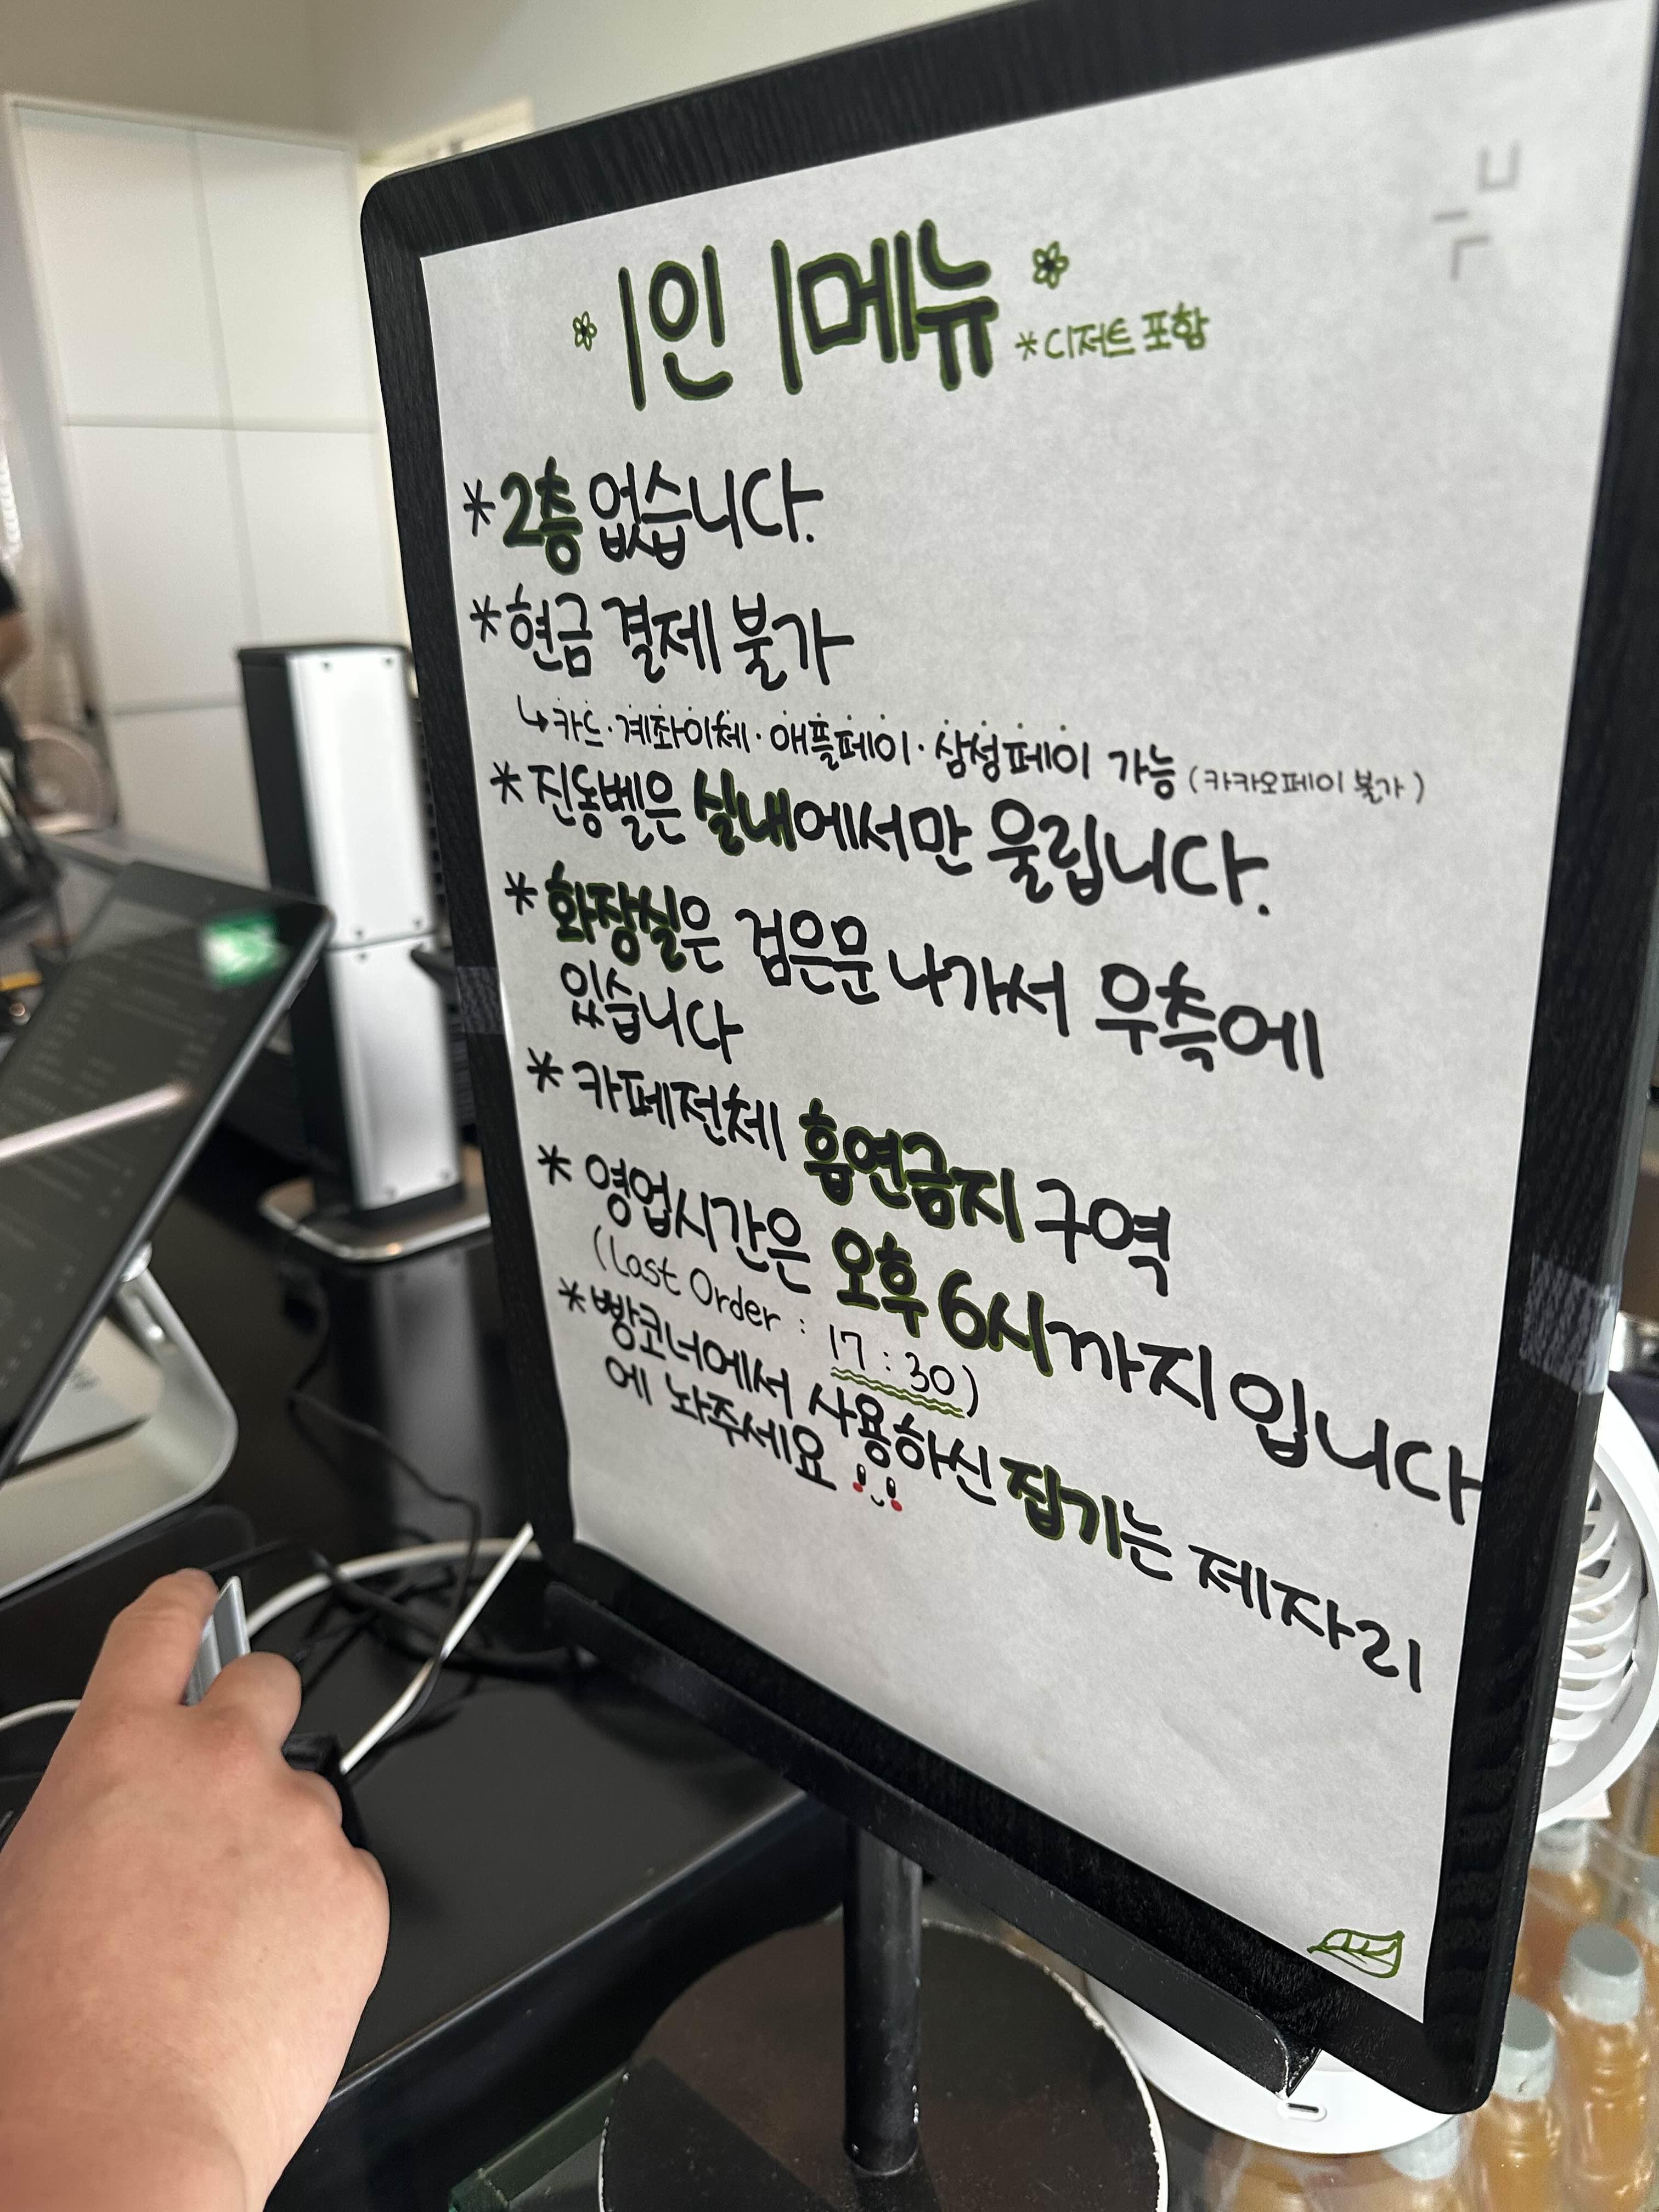 1인 1메뉴 *디저트 포함
*2층 없습니다.
*현금 결제 불가
↳카드·계좌이체·애플페이·삼성페이 가능 (카카오페이 불가)
*진동벨은 실내에서만 울립니다.
*화장실은 검은문 나가서 우측에
있습니다
*카페전체 흡연금지 구역
*영업시간은 오후 6시까지 입니다
(Last Order : 17:30)
*빵코너에서 사용하신 집기는 제자리
에 놔주세요